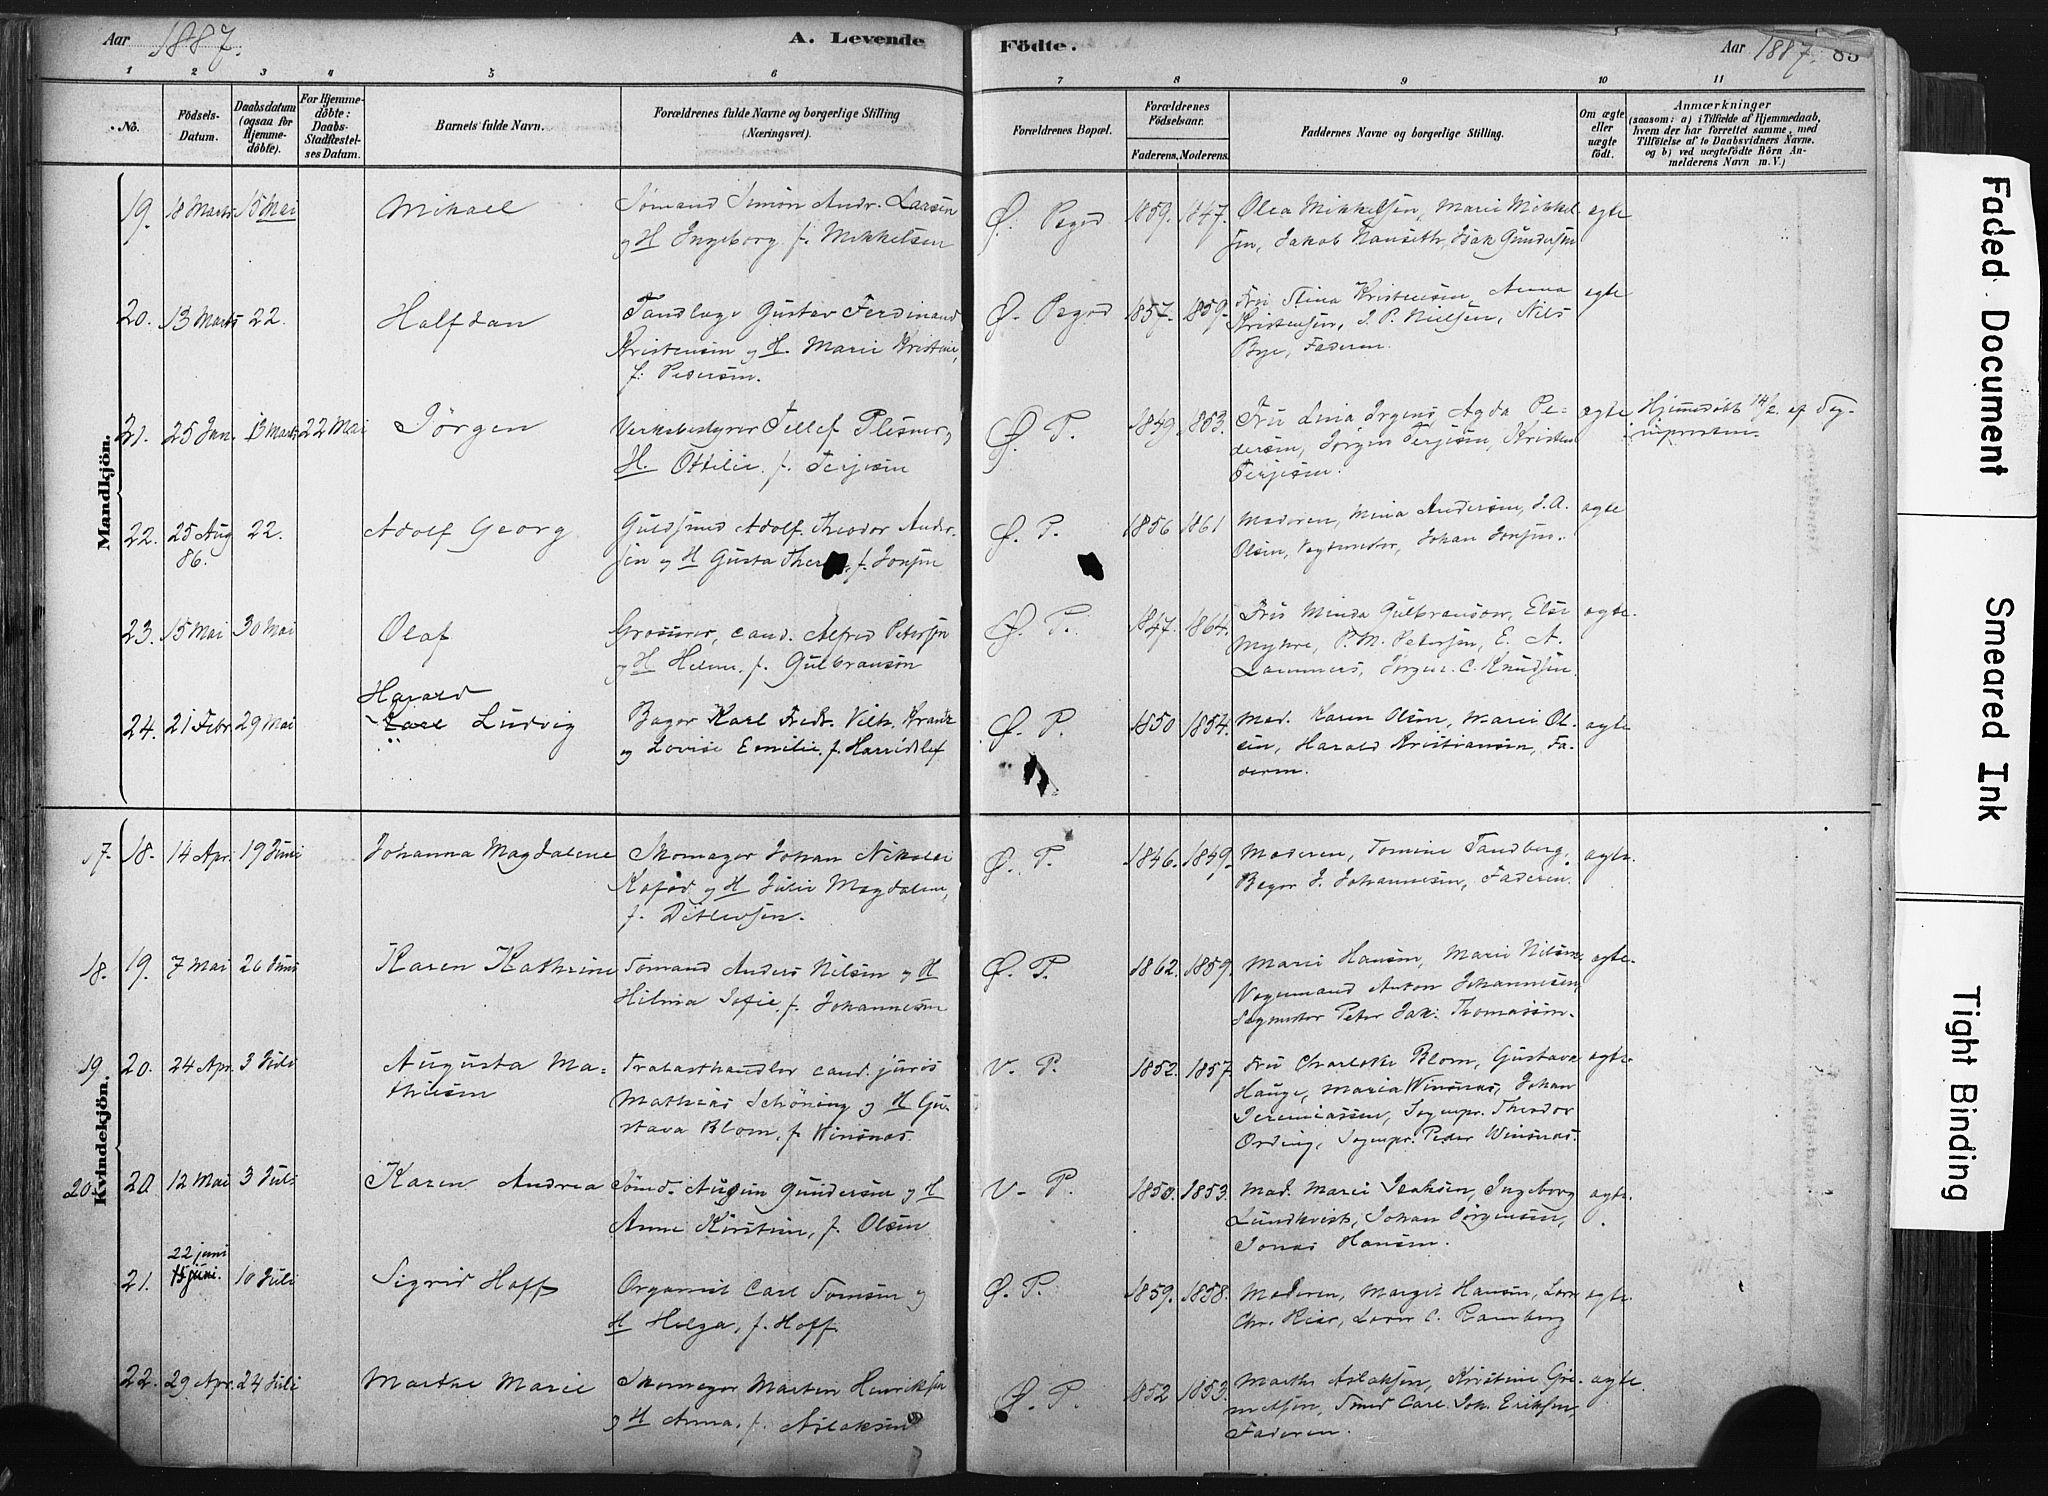 Aar 1887. A. Levende Födte. Aar 1887. 85
1 2 3 4 5 6 7 8 9 10 11
No.
Födsels-
Datum.
Daabsdatum
(ogsaa for
Hjemme-
döbte).
For Hjemme-
döbte:
Daabs-
Stadfæstel-
ses Datum.
Barnets fulde Navn.
Forældrenes fulde Navne og borgerlige Stilling
(Næringsvei).
Forældrenes Bopæl.
Forældrenes
Födselsaar.
Faderens. Moderens.
Faddernes Navne og borgerlige Stilling.
Om ægte
eller
uægte
födt.
Anmærkninger
(saasom: a) i Tilfælde af Hjemmedaab,
hvem der har forrettet samme, med
Tilföielse af to Daabsvidners Navne,
og b) ved uægtefödte Börn An-
melderens Navn m. V.)
Mandkjön.
19. 18 Marts 15 Mai Mikael Sømand Simon Andr. Larsen Ø. Psgrd 1859. 1847. Olea Mikkelsen, Marie Mikkel- ægte
og H Ingeborg f. Mikkelsen sen, Jakob Hanseth, Isak Gundersen
20. 13 Marts 22. Halfdan Tandlæge Gustav Ferdinand Ø. Psgrd 1857. 1859. Fru Stina Kristensen, Anna ægte
Kristensen og H. Marie Kristine, Kristensen, J. P. Nielsen, Nils
f. Pedersen. Bye, Faderen.
21. 25 Jan. 13 Marts 22 Mai Jörgen Verksbestyrer Tellef Plesner og Ø. P. 1849. 1853. Fru Lina Irgens, Agda Pe- ægte Hjemmedöbt 14/2 af Sog-
H. Ottilie f. Terjesen dersen, Jörgen Terjesen, Kristen nepresten.
Terjesen.
22. 25 Aug 22. Adolf Georg Guldsmed Adolf Theodor Ander- Ø. P. 1856 1861 Moderen, Mina Andersen, J. A. ægte
86. sen og H Gusta f. Jonsen Olsen, Johan Jonsen.
23. 15 Mai 30 Mai Olaf Grosserer, cand. Alfred Petersen Ø. P. 1847 1864. Fru Minda Gulbranson, Else ægte.
og H Helene f. Gulbranson Myhre, P. M. Petersen, E. A.
Lammers, Jörgen C. Knudsen.
Harald
24. 21 Febr. 29 Mai Karl Ludvig Bager Karl Fredr. Vilh. Krantz Ø. P. 1850 1854. Mad. Karen Olsen, Marie Ol- ægte
og Lovise Emilie f. Harridslef sen, Harald Kristiansen, Fa-
deren.
Kvindekjön.
17. 18. 14 Apr. 19 Juni Johanna Magdalene Skomager Johan Nikolai Ø. P. 1846. 1849. Moderen, Tomine Tandberg, ægte.
Kofod og H Julie Magdalene, Bager J. Johannesen, Faderen.
f. Ditlevsen.
18. 19. 7 Mai 26 Juni Karen Kathrine Sømand Anders Nilsen og H Ø. P. 1862. 1859. Marie Hansen, Marie Nilsen, ægte.
Hilma Sofie, f. Johannesen Vognmand Anton Johannesen,
Peter Jak. Thomassen.
19. 20. 24 Apr. 3 Juli Augusta Ma- Trælasthandler cand. juris V. P. 1852. 1857. Fru Charlotte Blom, Gustava ægte.
thiesen Mathias Schöning og H Gu- Hauge, Maria Winsnes, Johan
stava Blom, f. Winsnes. Jeremiassen, Sognepr. Theodor
Ording, Sognepr. Peder Winsnes.
20. 20. 12 Mai 3 Juli Karen Andrea Sømd. August Gundersen og H V. P. 1850. 1853. Mad. Marie Isaksen, Ingeborg ægte.
Anne Kirstine, f. Olsen Lundkvist, Johan Jørgensen,
Jonas Hansen.
22 juni
21. 15 juni. 10 Juli Sigrid Hoff Organist Carl Tomsen og Ø. P. 1859. 1858. Moderen, Margit Hansen, ægte.
H Helga, f. Hoff. Chr. Kiær, C. Ramberg
22. 29 Apr. 24 Juli Marthe Marie Skomager Morten Henriksen Ø. P. 1852 1853. Marthe Aslaksen, Kristine Gri- ægte.
og H Anna, f. Aslaksen Carl Joh. Eriksen,
Faderen.
Faded Document
Smeared Ink
Tight Binding